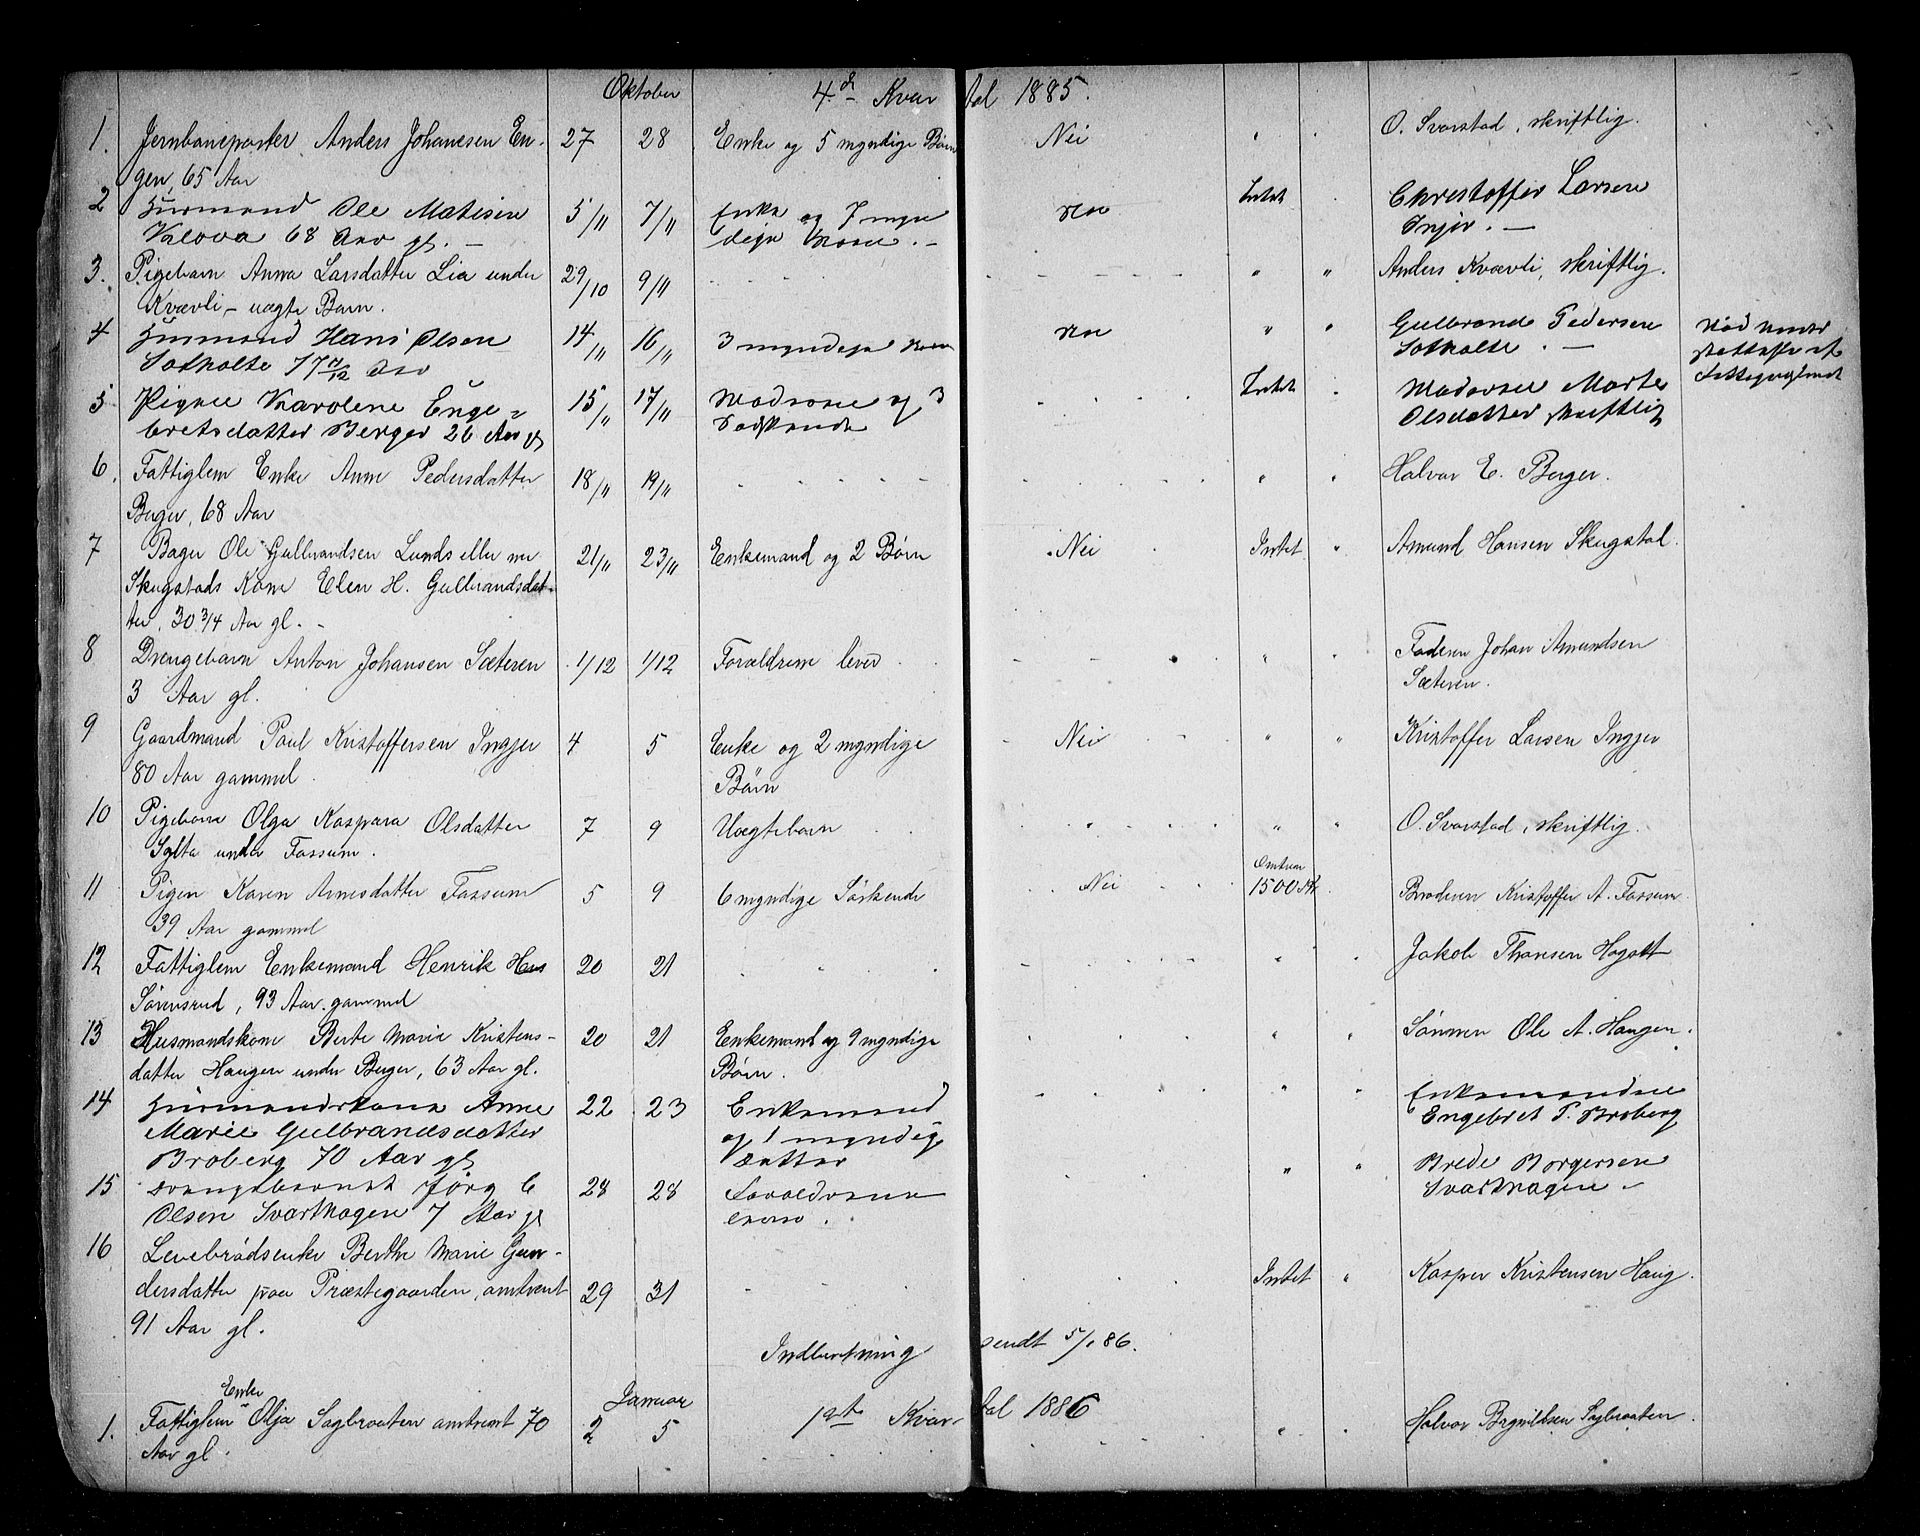 Oktober 4d Kvartal 1885.
1. Jernbaneporter Anders Johanesen En- 27 28 Enke og 5 myndige Børn Nei " " O. Svarstad, skriftlig.
gen, 65 Aar
2 Husmand Ole Matisen 5/11 7/11 Enke og 7 myn Intet Christoffer Larsen
Klova 68 Aar gl. - dige Ingier. -
3. Pigebarn Anna Larsdatter Lia under 29/10 9/11 " " Anders Kvævli, skriftlig.
Kvævli - uægte Barn.
4 Husmand Hans Olsen 14/11 16/11 3 myndige " " Gulbrand Pedersen
Sotholte 77 11/12 Aar Sotholte. -
5 Pigen Karolene Enge- 15/11 17/11 og 3 Intet Moderen Marte
bretsdatter Berger 26 Aar gl Olsdatter skriftlig
6. Fattiglem Enke Anne Pedersdatter 18/11 19/11 " " Halvor E. Berger.
Berger, 68 Aar
7 Bager Ole Gulbrandsen Lunds eller nu 21/11 23/11 Enkemand og 2 Børn Nei Intet " Amund Hansen Skugstal.
Skugstads Kone Elen H. Gulbrandsdat-
ter, 30 3/4 Aar gl. -
8 Drengebarn Anton Johansen Sæteren 1/12 1/12 Forældrene lever " " Faderen Johan Amundsen
3 Aar gl. Sæteren.
9 Gaardmand Paul Kristoffersen Ingjer 4 5 Enke og 2 myndige Nei " " Kristoffer Larsen Ingjer
80 Aar gammel. Børn
10 Pigebarn Olga Kaspara Olsdatter 7 9 Uægtebarn " " O. Svarstad, skriftlig.
Sylta under Fossum.
11 Pigen Karen Arnesdatter Fossum 5 9 6 myndige Søskende Nei Omtrent 1500 Kr. Broderen Kristoffer A. Fossum.
39 Aar gammel
12 Fattiglem Enkemand Henrik Hans 20 21 " " Jakob Hagatt
Sørensrud, 93 Aar gammel
13 Husmandskone Berte Marie Kristens- 20 21 Enkemand og 9 myndige " " Sønnen Ole A. Haugen.
datter Haugen under Berger, 63 Aar gl. Børn.
14 Husmandskone Anne 22 23 Enkemand " " Enkemanden
Marie Gulbrandsdatter og 1 myndig Engebret P. Broberg
Broberg 70 Aar gl Datter
15 Drengebarnet Jørg C 28 28 Forældrene " " Brede Borgersen
Olsen Svarthagen 7 Aar gl Svarthagen -
16 Levebrødsenke Berthe Marie Gun-
dersdatter paa Præstegaarden, omtrent 29 31 Intet " Kasper Kristensen Haug.
91 Aar gl.
Indberetning sendt 5/1 86.
Januar 1ste Kvartal 1886
Enke
1. Fattiglem Olja Sagbraaten omtrent 70 2 5 " " Halvor Brynildsen Sagbraaten.
Aar gl.